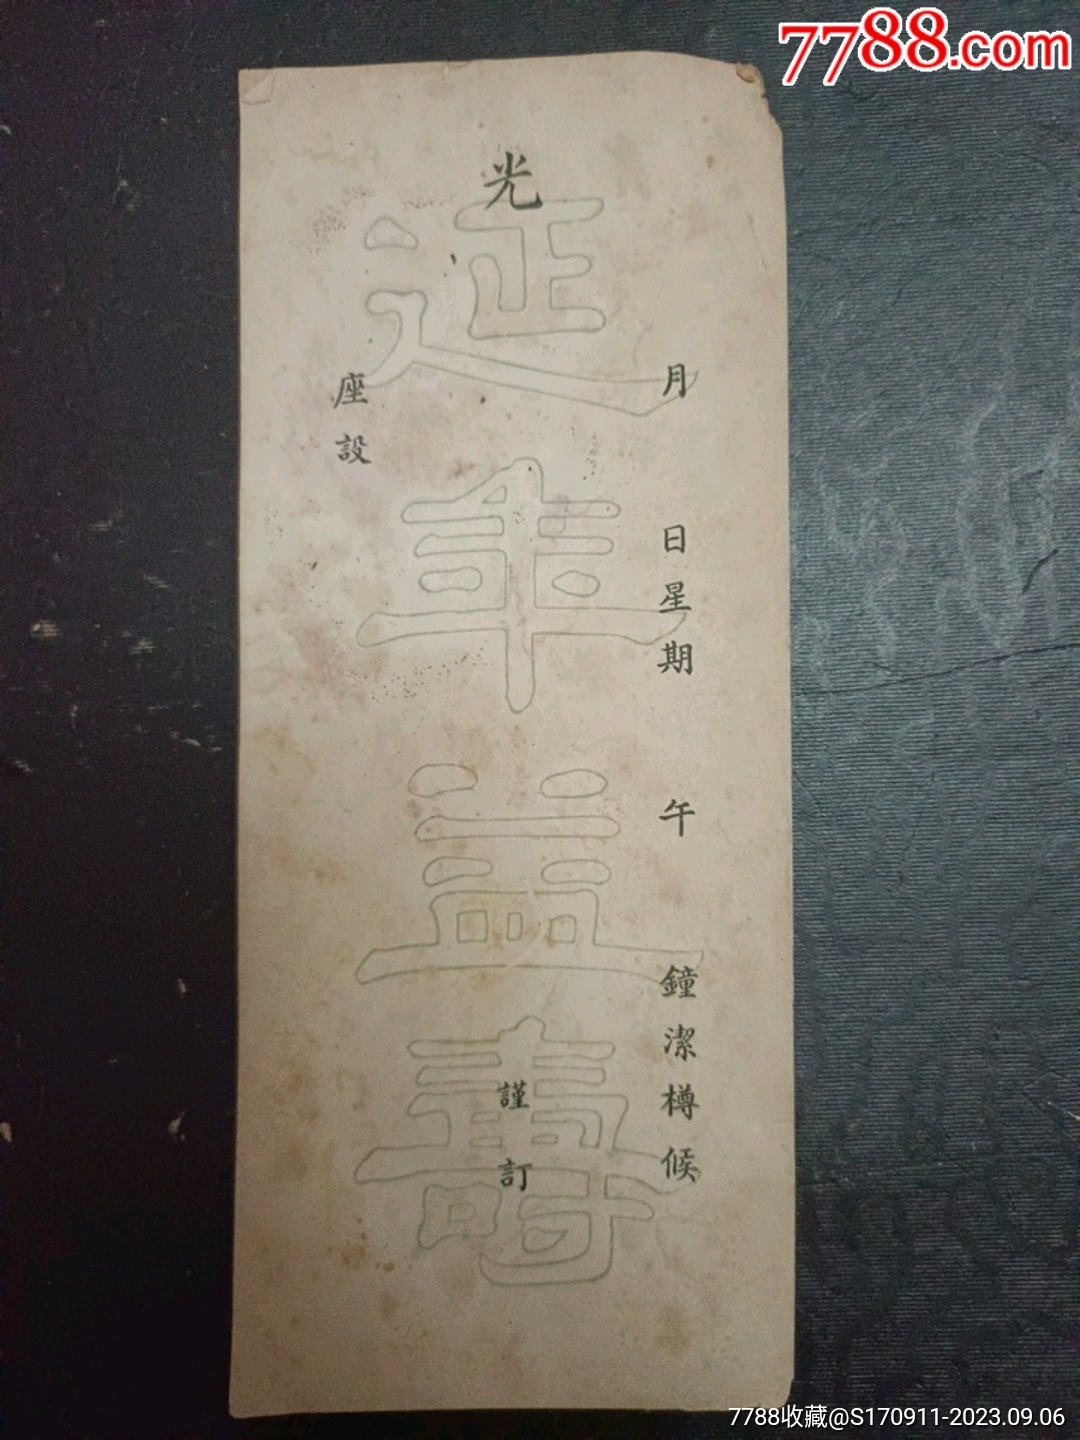 7788.com
月 日星期 午 鐘潔樽候
光
謹訂
座設
延年益壽
7788收藏@S170911-2023.09.06